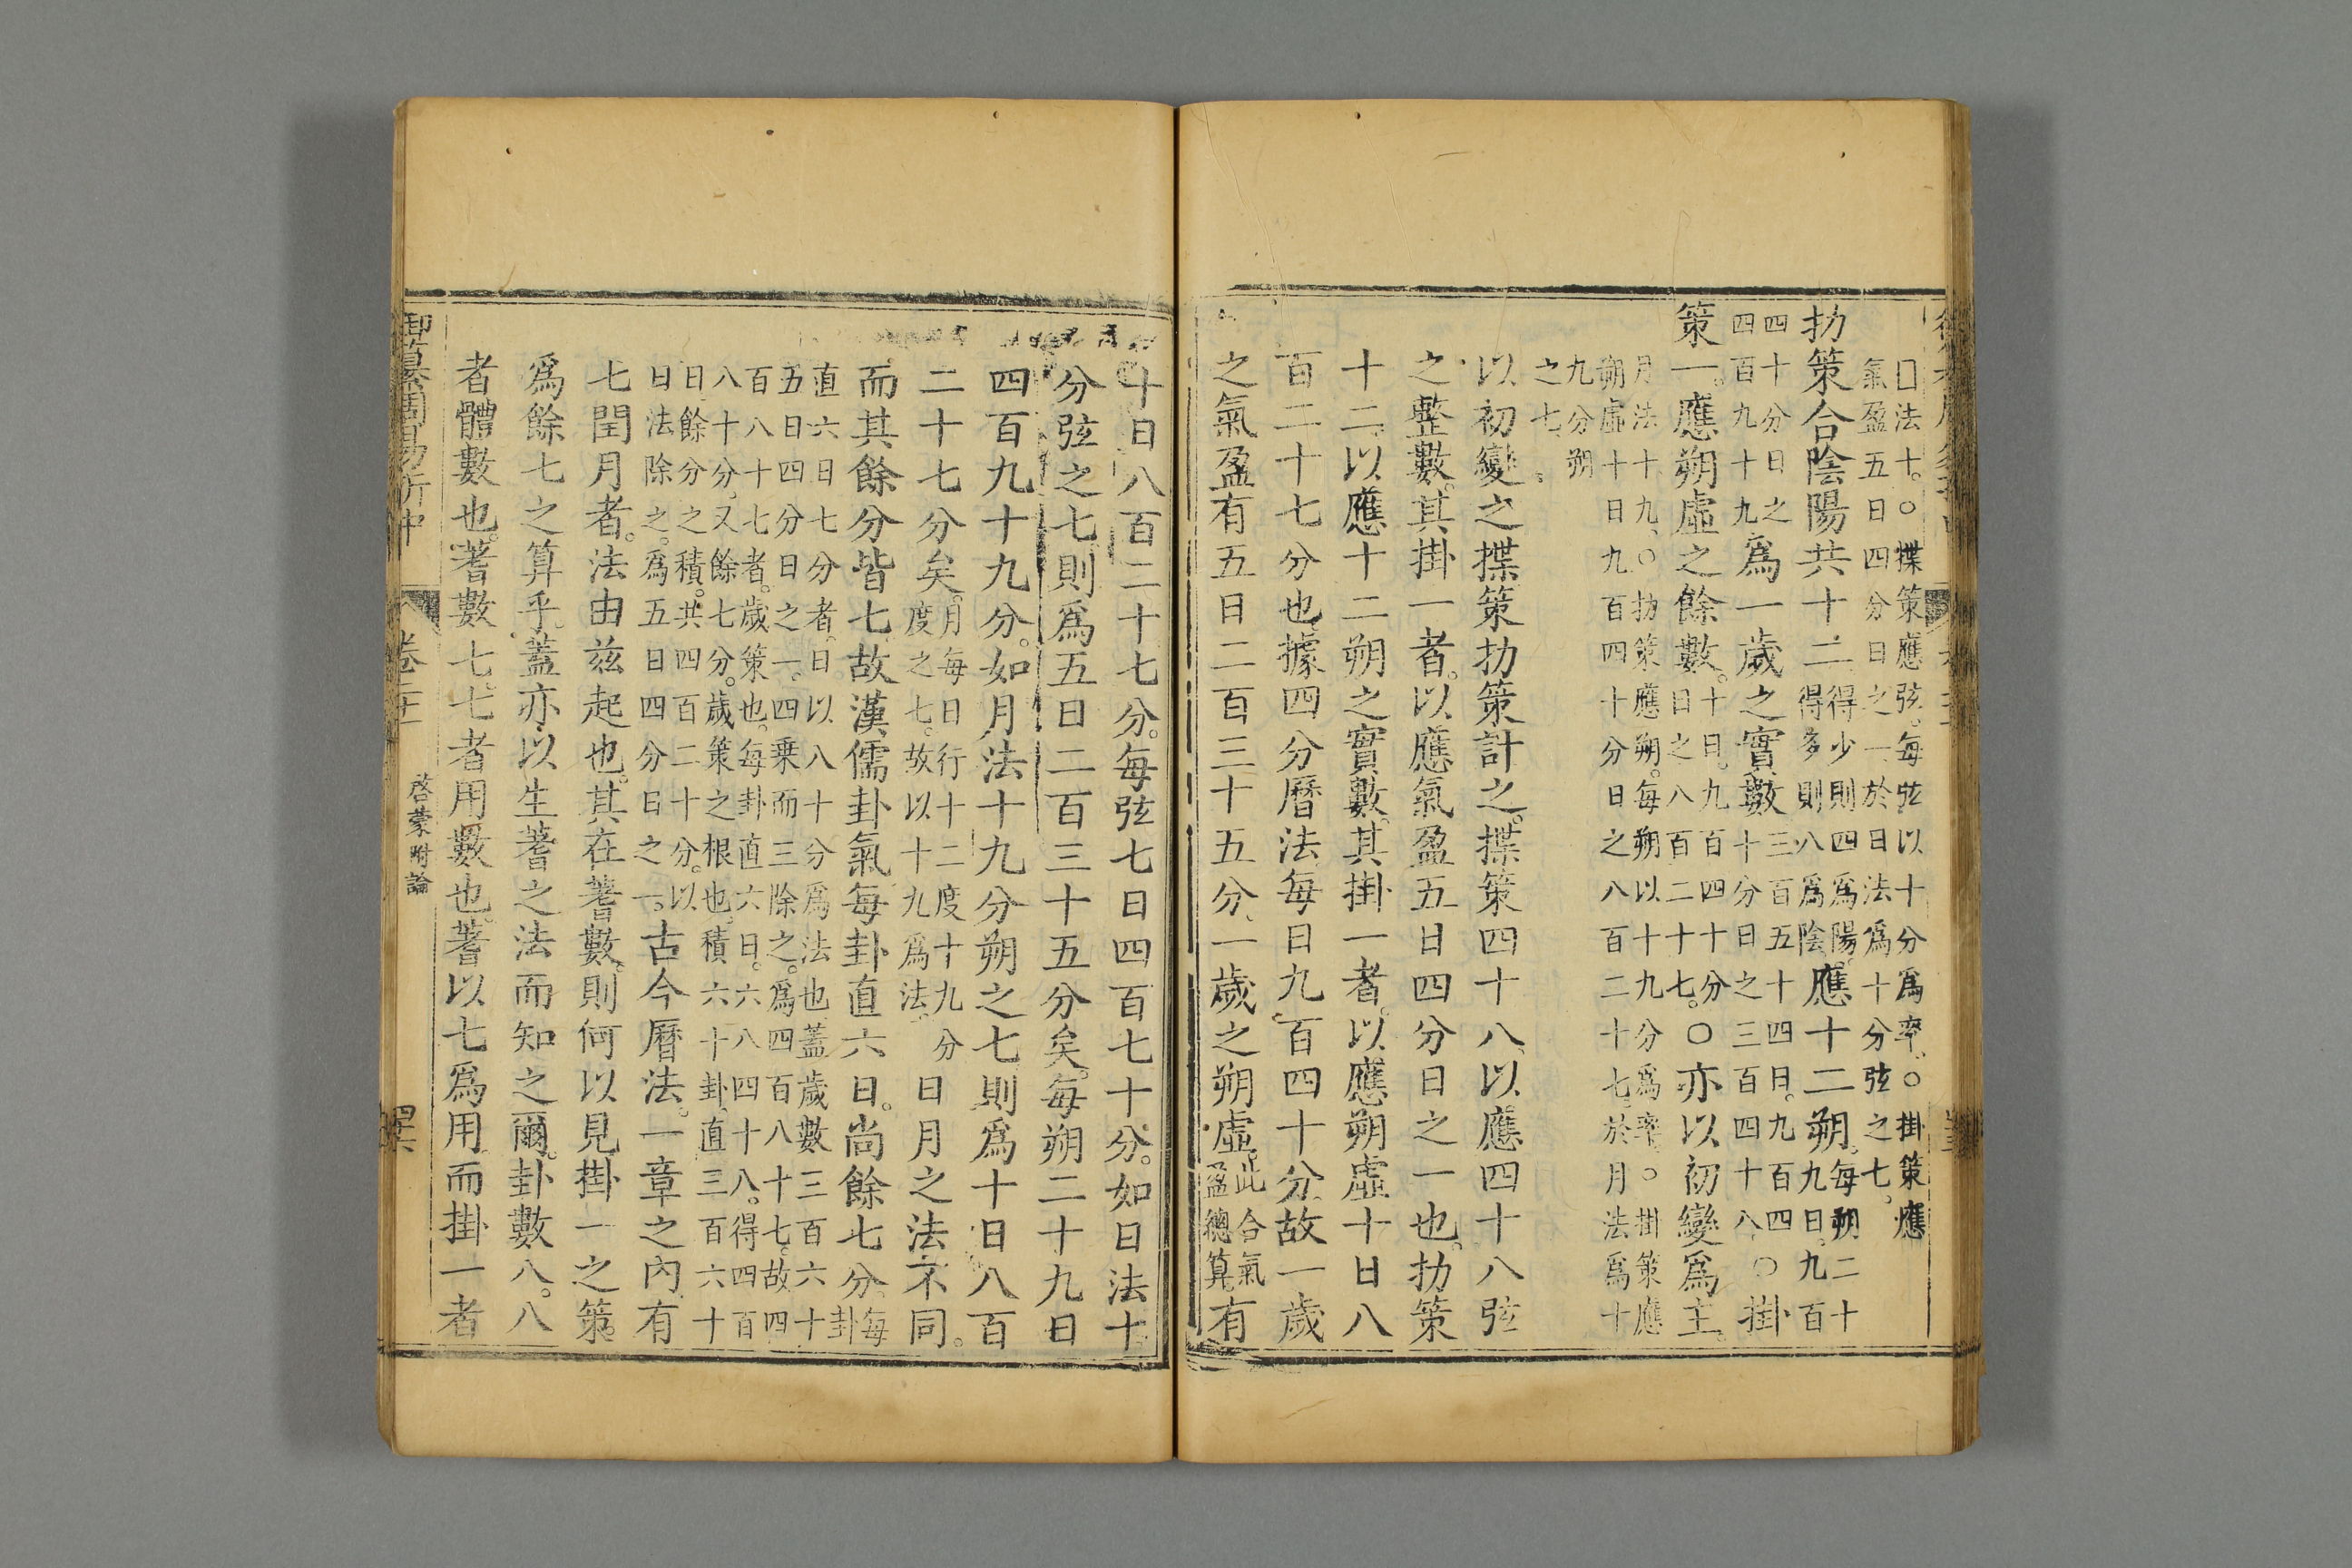 日法十。○揲策應弦。每弦以十分爲率。○掛策應
氣盈五日四分日之一於日法爲十分弦之七。
扐策合陰陽共十二得少則四爲陽。
得多則八爲陰。應十二朔。每朔二十
九日。九百
四十分日之
四百九十九爲一歲之實數三百五十四日。九百四
十分日之三百四十八。○掛
策一。應朔虛之餘數。十日。九百四十分
日之八百二十七。○亦以初變爲主。
月法十九。○扐策應朔。每朔以十九分爲率。○掛策應
朔虛十日九百四十分日之八百二十七。於月法爲十
九分朔
之七。
以初變之揲策扐策計之。揲策四十八。以應四十八弦
之整數。其掛一者。以應氣盈五日四分日之一也。扐策
十二。以應十二朔之實數。其掛一者。以應朔虛十日八
百二十七分也。據四分曆法。每日九百四十分。故一歲
之氣盈有五日二百三十五分。一歲之朔虛此合氣
盈總算。有
十日八百二十七分。每弦七日四百七十分。如日法十
分弦之七。則爲五日二百三十五分矣。每朔二十九日
四百九十九分。如月法十九分朔之七。則爲十日八百
二十七分矣。月每日行十二度十九分
度之七。故以十九爲法。日月之法不同。
而其餘分皆七。故漢儒卦氣每卦直六日。尚餘七分。每
卦
直六日七分者。日以八十分爲法也。蓋歲數三百六十
五日四分日之一。四乘而三除之。爲四百八十七。故四
百八十七者。歲策也。每卦直六日。六八四十八。得四百
八十分。又餘七分。歲策之根也。積六十卦。直三百六十
日。餘分之積。共四百二十分。以
日法除之。爲五日四分日之一。古今曆法。一章之內有
七閏月者。法由玆起也。其在蓍數。則何以見掛一之策。
爲餘七之算乎。蓋亦以生蓍之法而知之爾。卦數八。八
者體數也。蓍數七。七者用數也。蓍以七爲用。而掛一者
御纂周易折中
卷二十一
啓蒙附論